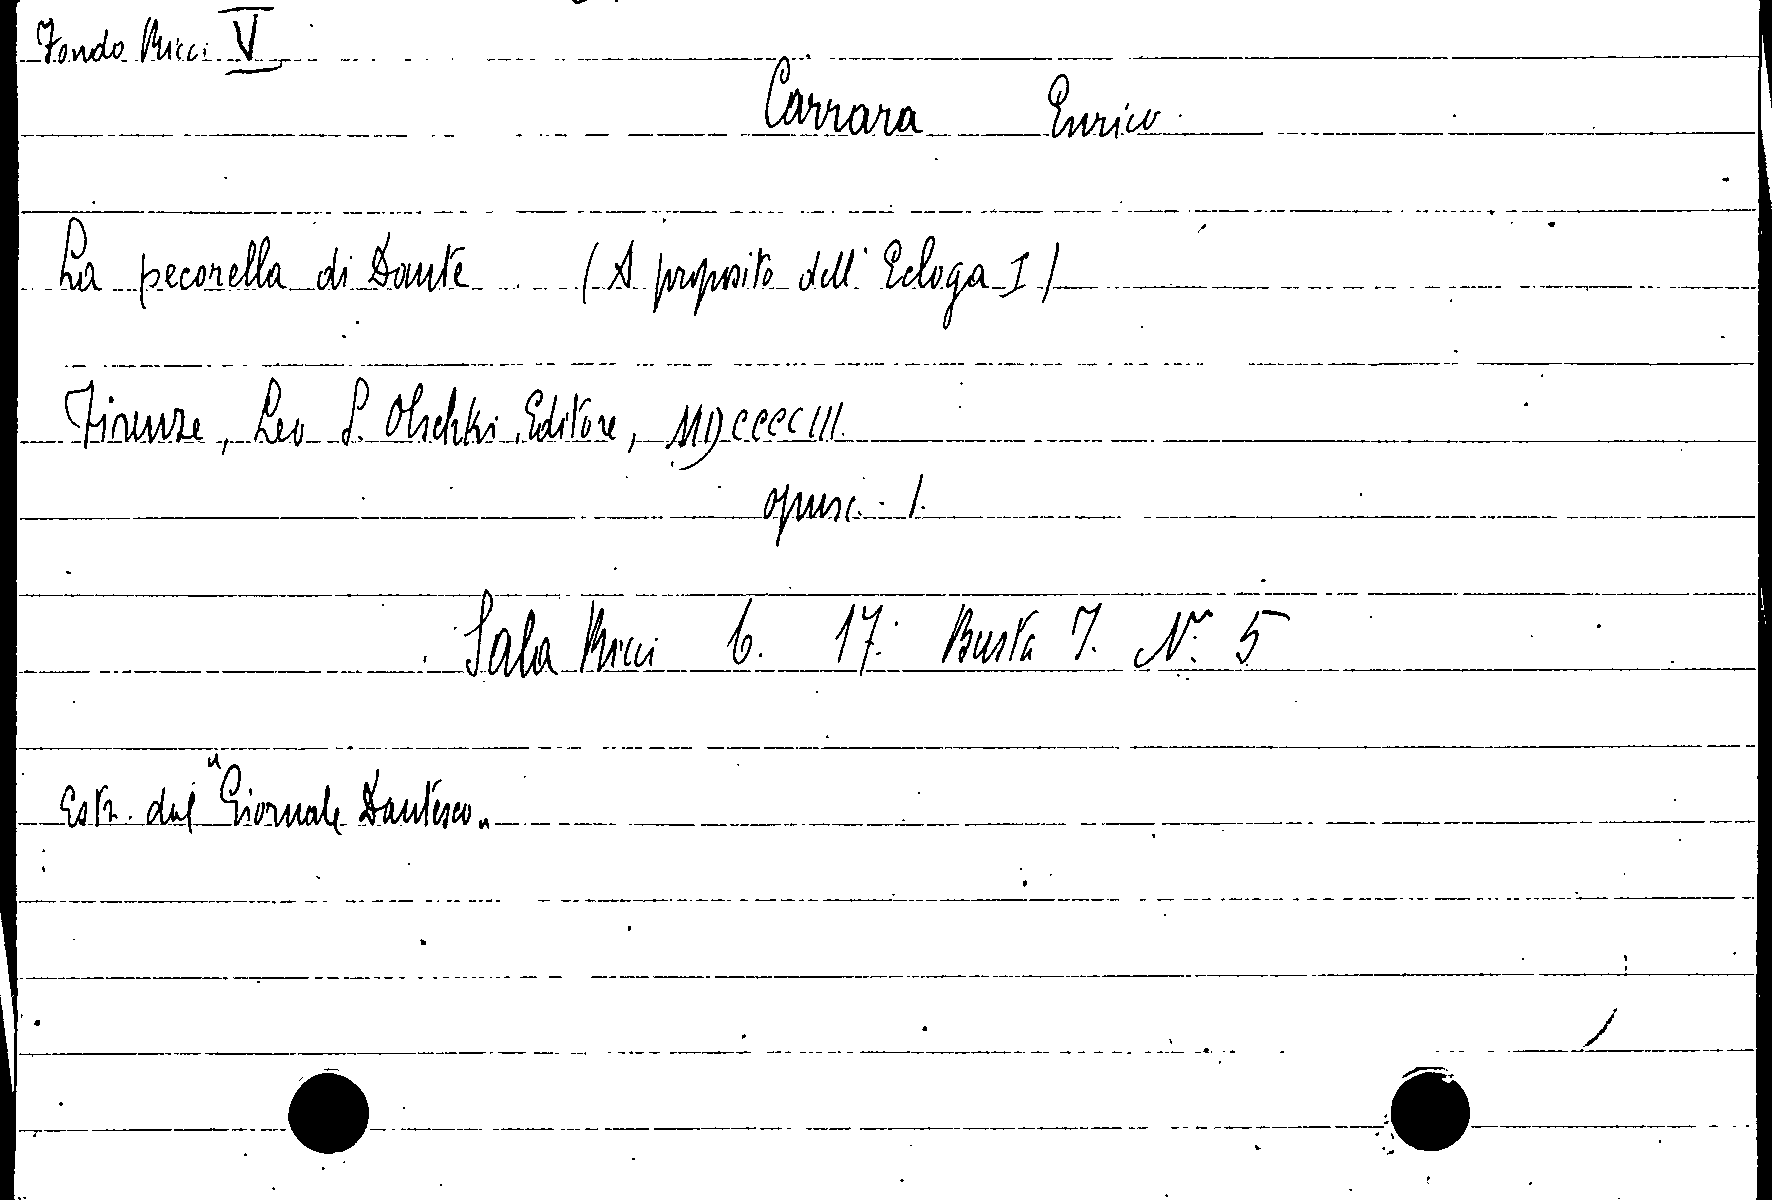 Fondo Ricci V
Carrara Enrico.
La pecorella di Dante (A proposito dell' Ecloga I)
Firenze, Leo S. Olschki, Editore, MDCCCCIII.
opusc. 1.
Sala Ricci 6. 17. Busta 7. N. 5
Estr. dal "Giornale Dantesco"